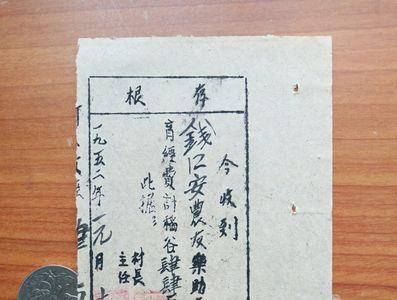 存根
今收到
錢仁安農友樂助
育經費計稻谷肆肆
此據
村長
主任
一九五二年元月